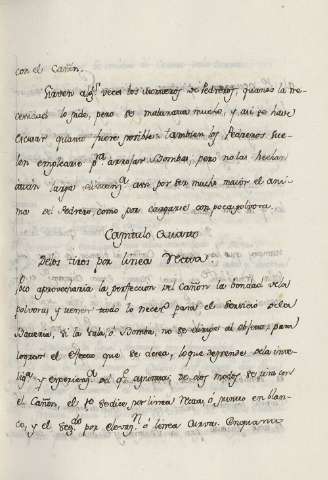 con el Cañon.
Sirven algs. veces los Morteros de Pedreros, quando la ne-
cesidad lo pide, pero se maltratan mucho, y asi se deve
escusar quanto fuere posible: tambien los Pedreros sue-
len emplearse pa. arrojar Bombas, pero no las hechan
a tan larga distanca. assi por ser mucho maior el ani-
ma del Pedrero, como por cargarse con poca polvora.
Capitulo Quarto
Delos tiros por linea Recta.
No aprovecharia la perfeccion del Cañon la bondad dela
polvora, y tener todo lo neceso. para el servicio dela
Bateria, si la vala, ò Bomba, no se dirige al objeto, para
lograr el efecto que se desea, lo que depende dela inte-
liga. y experiencia. del qe. apunta; de dos modos se tira con
el Cañon, el 1o. se dice por linea Recta, ò punto en blan-
co, y el segdo. por elevon. ò linea curva.